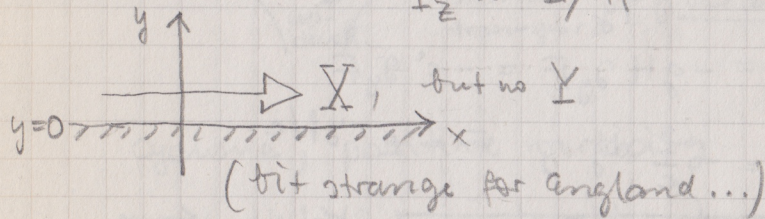 y
X, but no Y
y=0
x
(bit strange for England...)